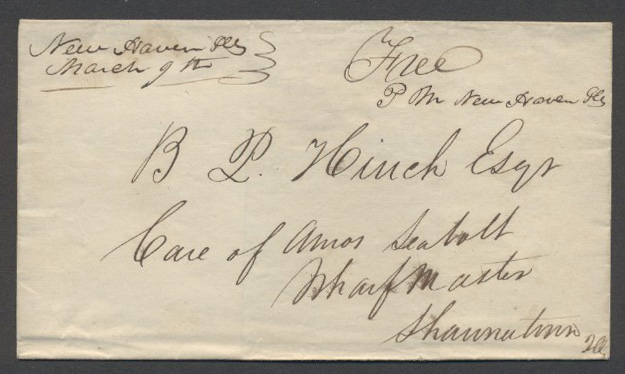 New Haven Ills
March 9th
Free
P M New Haven Ills
B P. Hinch Esqr
Care of Amos Seabolt
Wharf Master
Shawnatown
Ills